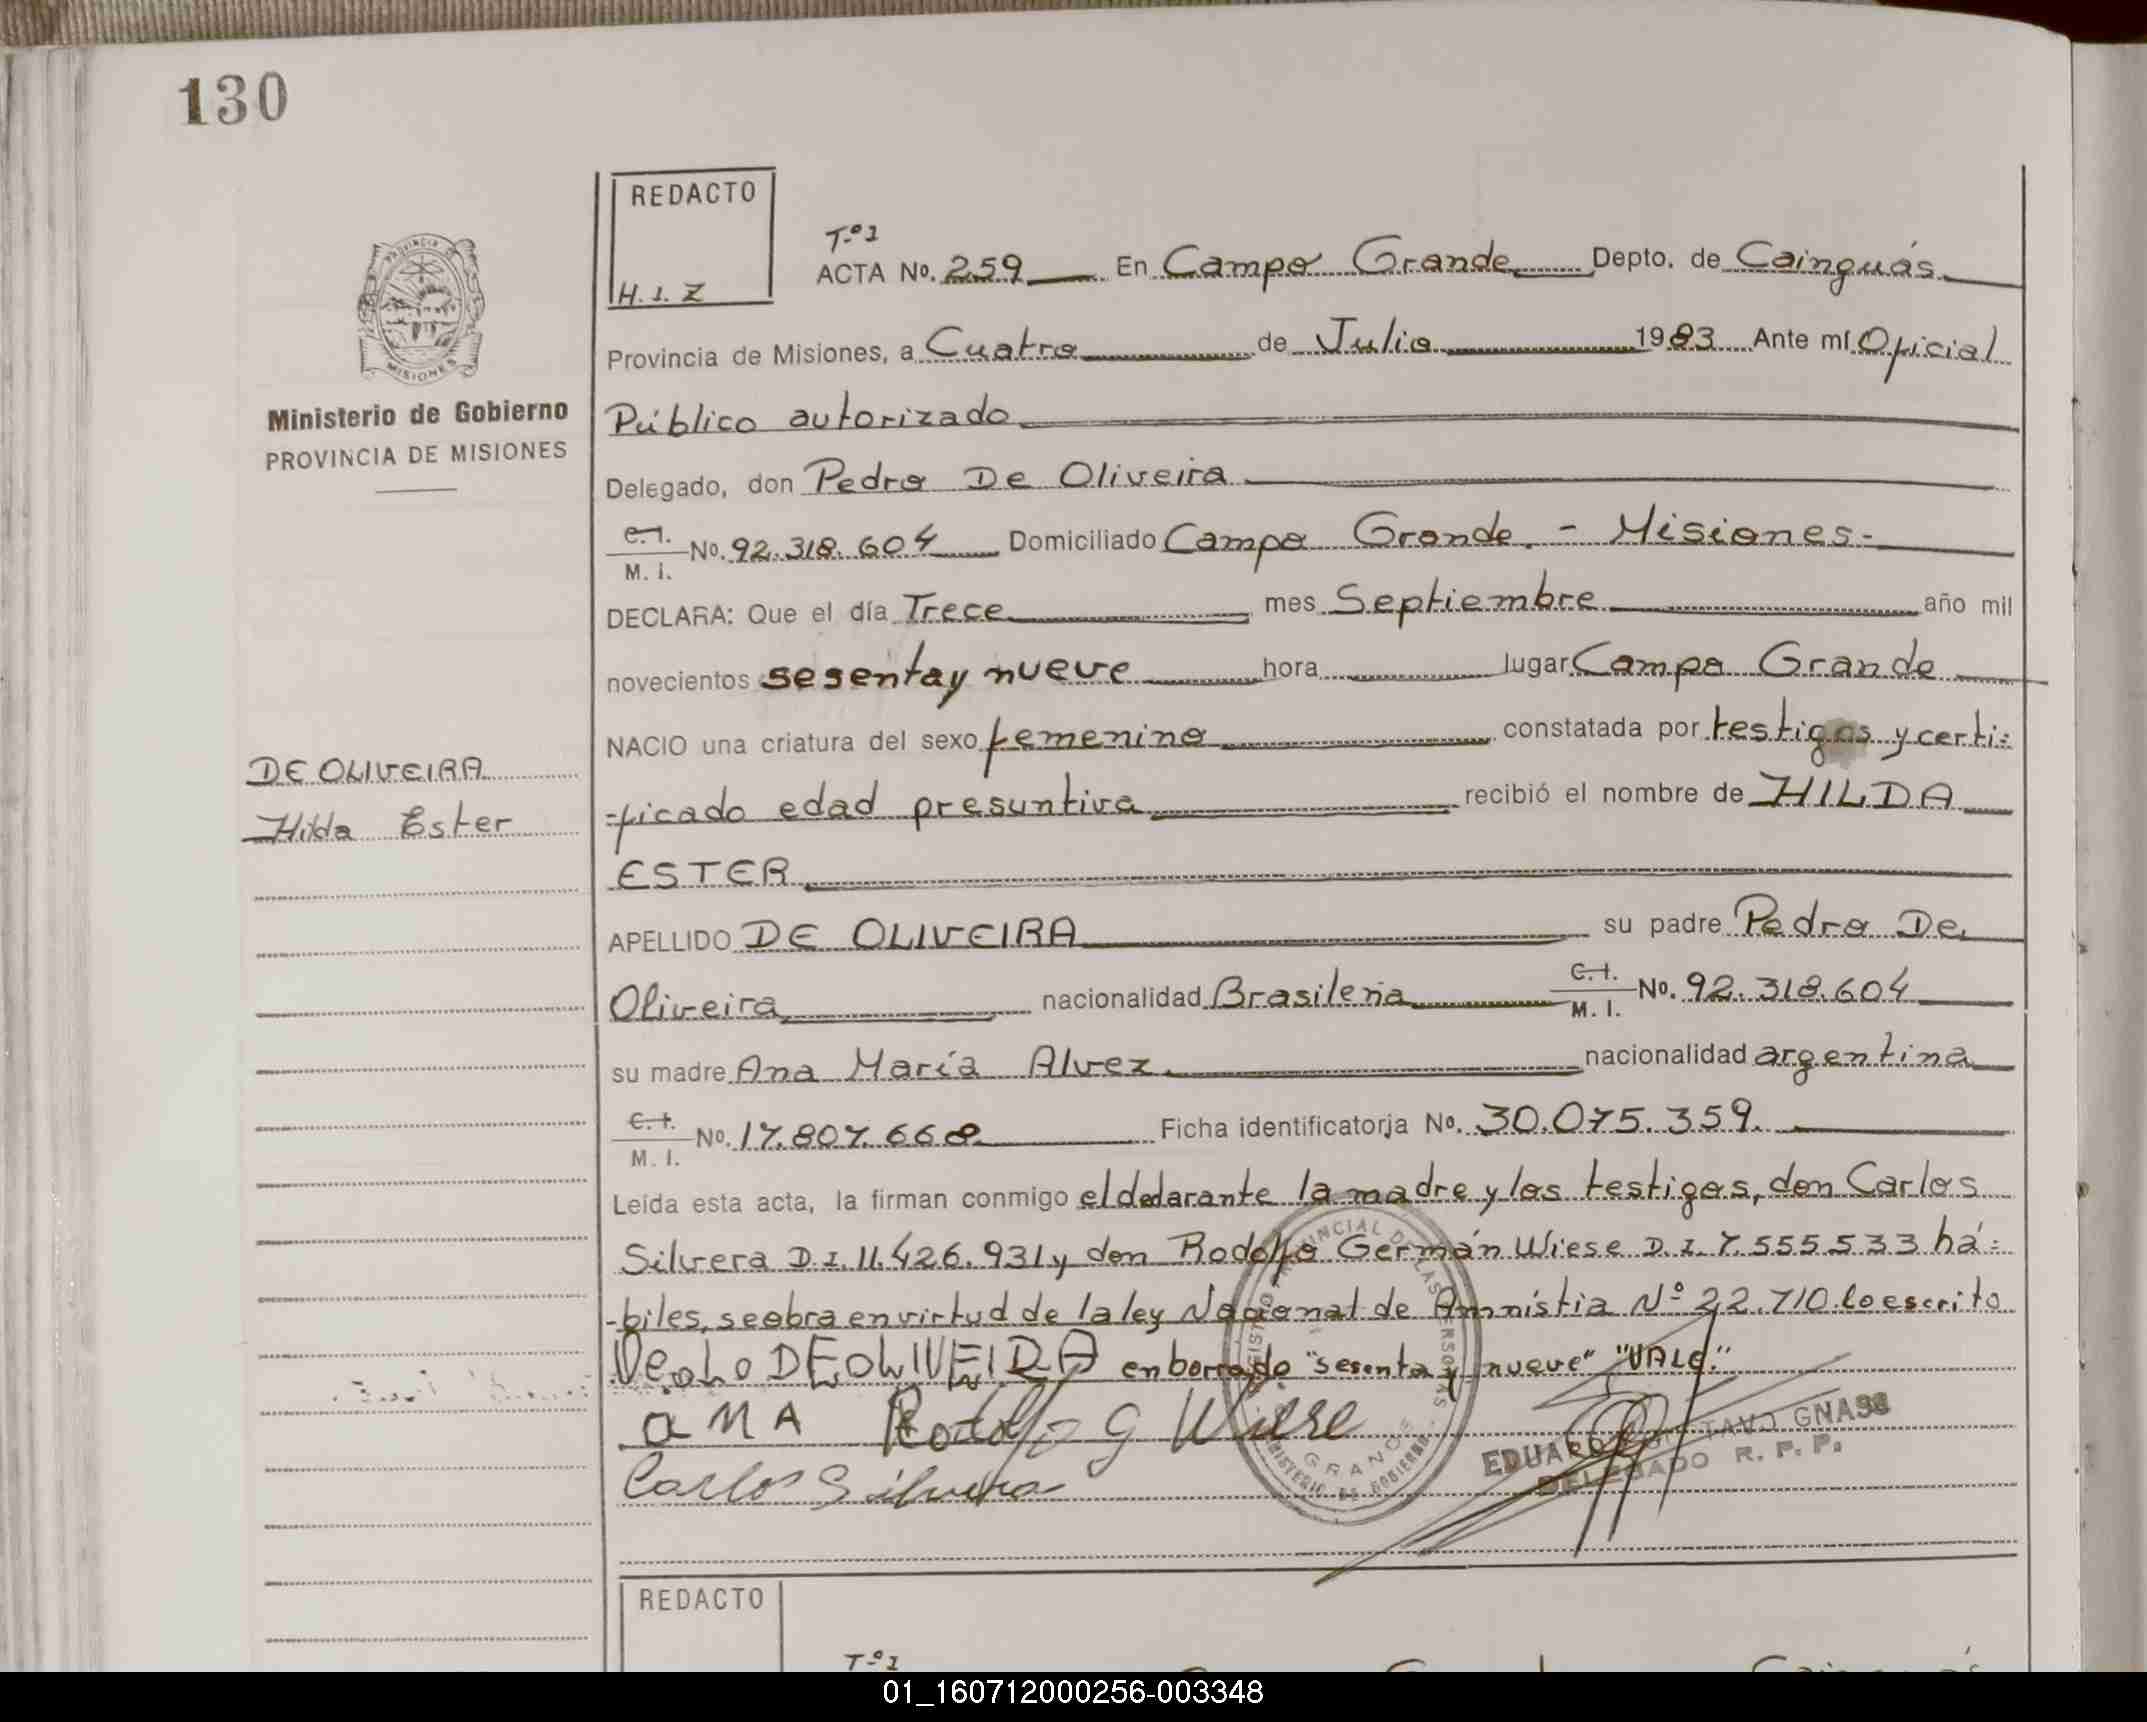 130
REDACTO
H.J.Z
PROVINCIA
MISIONES
Ministerio de Gobierno
PROVINCIA DE MISIONES
T.º1
ACTA No. 259 En Campo Grande Depto. de Cainguás
Provincia de Misiones, a Cuatro de Julio 1983 Ante mí Oficial
Público autorizado
Delegado, don Pedro De Oliveira
C.I. M. I. No. 92.318.604 Domiciliado Campo Grande. - Misiones-
DECLARA: Que el día Trece mes Septiembre año mil
novecientos sesenta y nueve hora lugar Campo Grande
NACIO una criatura del sexo femenino constatada por testigos y certi=
DE OLIVEIRA
Hilda Ester
=ficado edad presuntiva recibió el nombre de HILDA
ESTER
APELLIDO DE OLIVEIRA su padre Pedro De
Oliveira nacionalidad Brasileña C.I. M. I. No. 92.318.604
su madre Ana María Alvez nacionalidad argentina
C.I. M. I. No. 17.807.668 Ficha identificatoria No. 30.075.359.
Leída esta acta, la firman conmigo el declarante la madre y los testigos, don Carlos
Silvera D.I. 11.426.931 y don Rodolfo Germán Wiese D.I. 7.555.533 há=
-biles, se obra en virtud de la ley Nacional de Amnistia Nº 22.710. lo escrito
DEOLIVEIRA en borrado "sesenta y nueve" "VALE."
aNA Rodolfo G Wiese
Carlos Silvera
GRANDE
MINISTERIO DE GOBIERNO
EDUARDO GUSTAVO GNASS
DELEGADO R. P. P.
REDACTO
T.º1
01_160712000256-003348